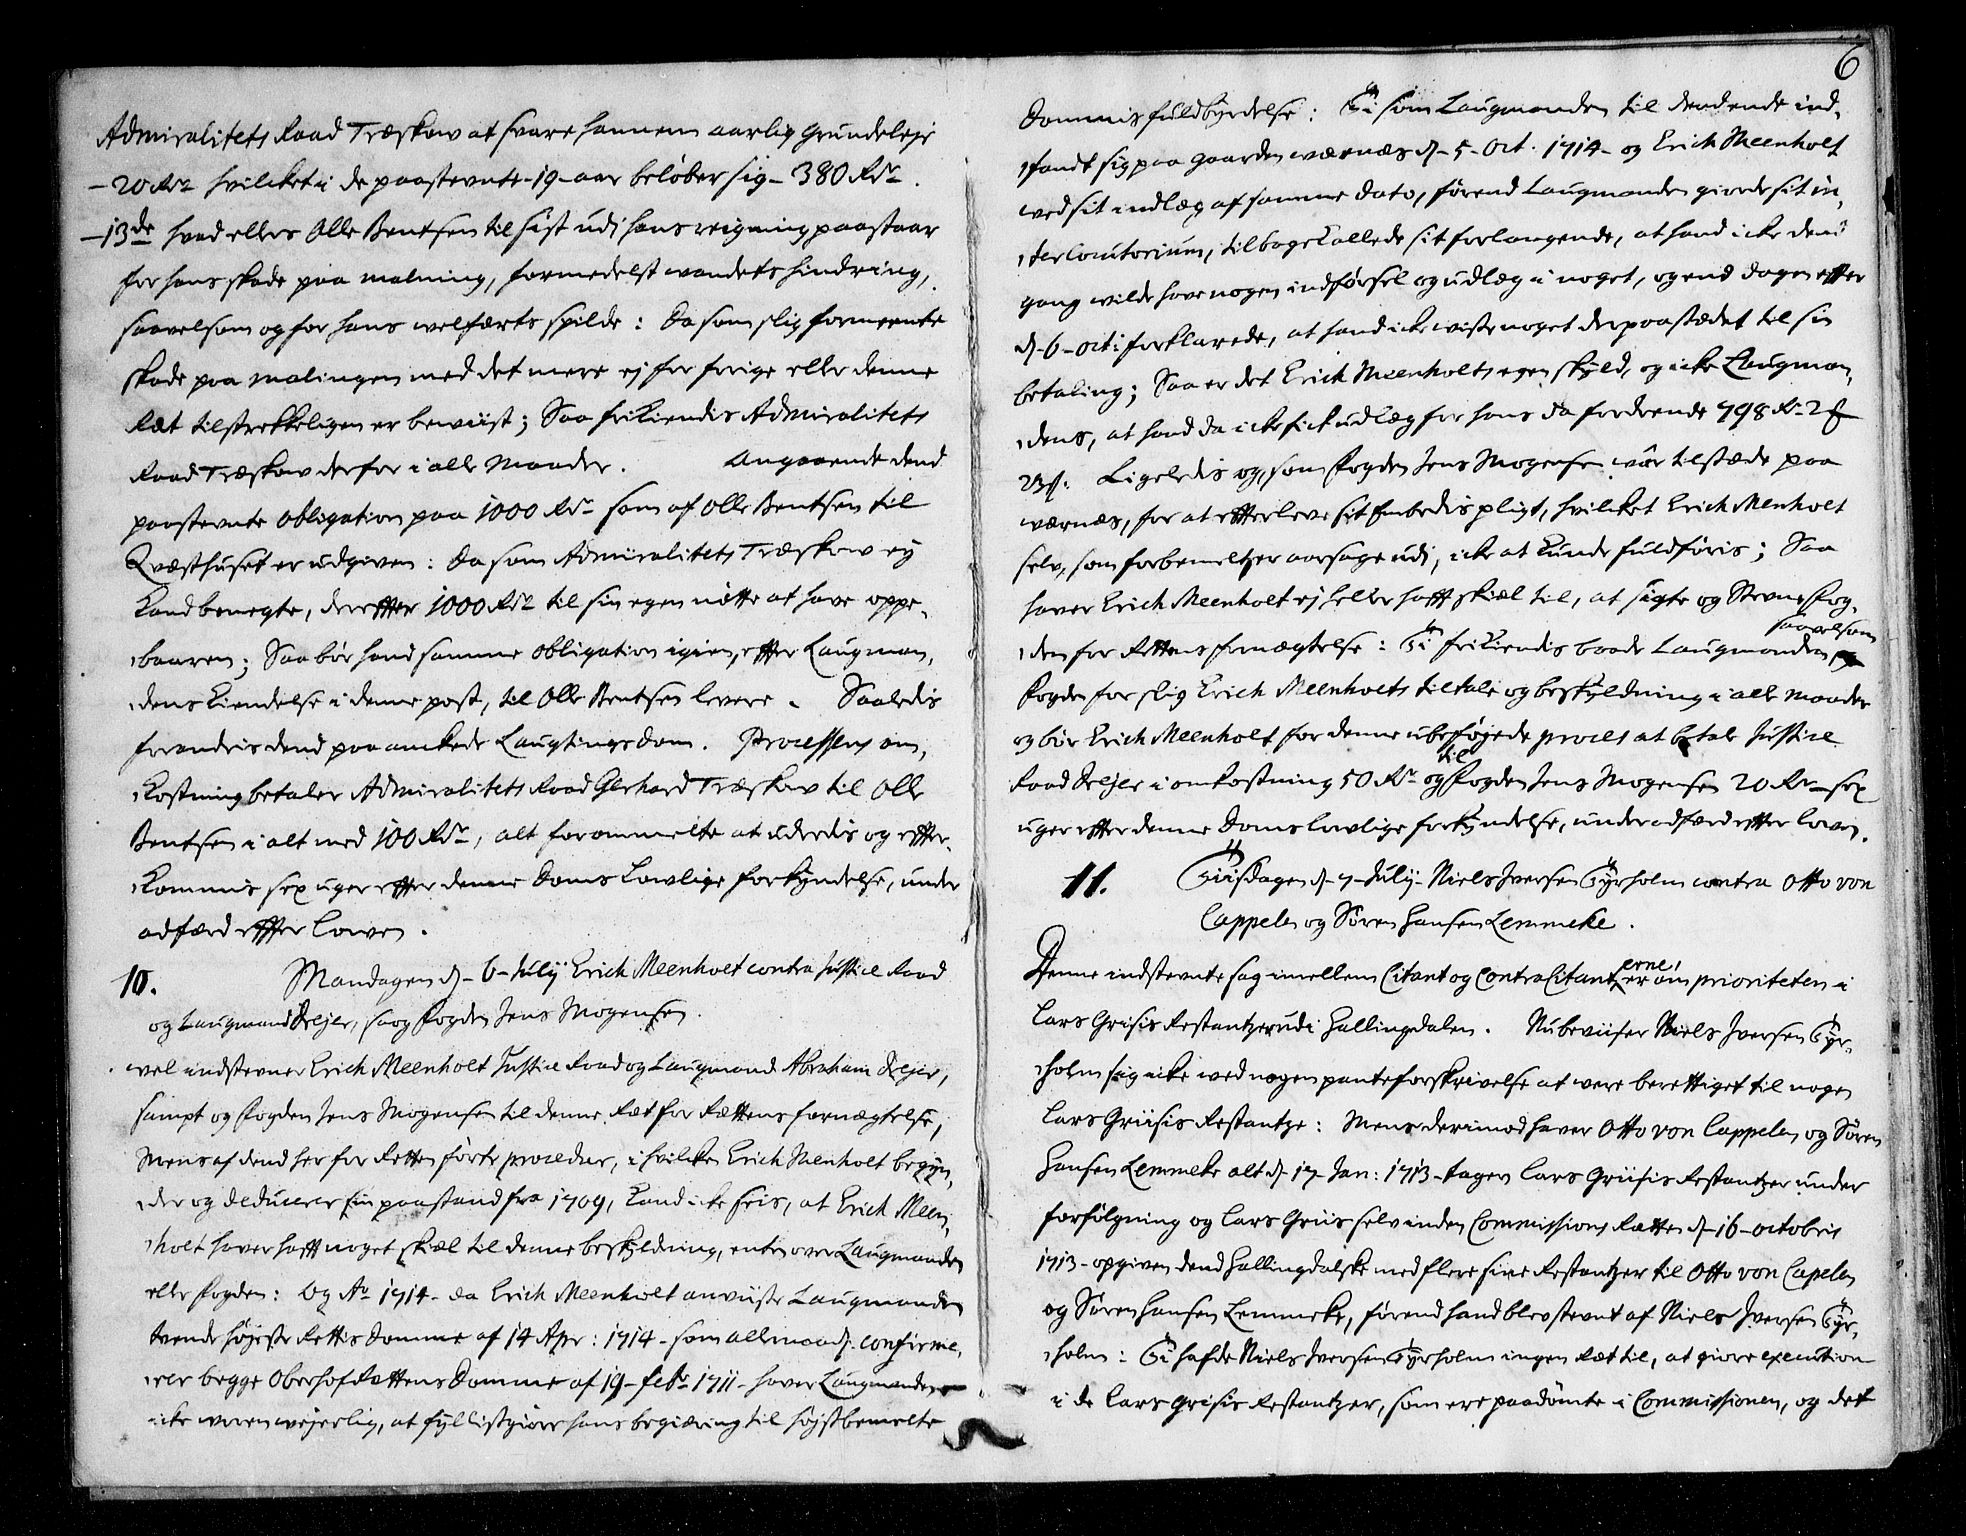 Admiralitets Raad Træskow at svare hannem aarlig grundeleje
– 20 Rdr hvilcket i de paastevnte – 19 – aar beløber sig – 380 Rdr.
– 13de hvad ellers Olle Bentsen til sist udi hans reigning paastaar
for hans skade paa malning, formedelst wandets hindring,
saavelsom og for hans welfærts spilde: Da som slig formeente
skade paa malingen med det mere ej for forige eller denne
Ræt tilstrekkeligen er bewiist; Saa frikiendis Admiralitets
Raad Træskow derfor i alle maader. Angaaende dend
paastevnte obligation paa 1000 Rdr som af Olle Bentsen til
Qvæsthuset er udgiven: Da som Admiralitets Træskow ey
Kand benegte, derefter 1000 Rdr til sin egen nøtte at have oppe,
baaren; Saa bør hand samme obligation igien, efter Laugman,
dens Kiendelse i denne post, til Olle Bentsen levere. Saaledis
forandris dend paaanckede Laugtingsdom. Processens om,
Kostning betaler Admiralitets Raad Gerhard Træskow til Olle
Bentsen i alt med 100 Rdr, alt forommelte at uderedis og efter,
Kommis sex uger efter denne Doms Lowlige forkyndelse, under
adfærd efter Lowen.
10. Mandagen d. – 6 – July Erich Meenholt contra Justice Raad
og Laugmand Drejer, saog Fogden Jens Mogensen.
wel indstevner Erich Meenholt Justice Raad og Laugmand Abraham Drejer,
sampt og Fogden Jens Mogensen til denne Ræt for Rættens fornægtelse,
Mens af dend her for Retten førte procedur, i hvilcken Erich Menholt begyn,
der og deducerer sin paastand fra 1709, Kand icke sees, at Erich Meen,
holt haver hafft noget skiæl til denne beskyldning, enten over Laugmanden
eller Fogden: Og Ao 1714 – da Erich Meenholt anviiste Laugmanden
tvende højeste Rettis Domme af 14 Apr: 1714 – som allemaad. confirme,
rer begge Oberhof Rettens Domme af 19 – febr 1711 – haver Laugmanden
icke weren wejerlig, at fyllistgiøre hans begiæring til højstbemelte
6
Dommis fuldbyrdelse: Ti som Laugmanden til dend ende ind,
fandt sig paa gaarden wærnæs d. – 5 – Oct. 1714 – og Erich Meenholt
wed sit indlæg af samme Dato, førend Laugmanden giorde sit in,
terlocutorium, tilbagekallede sit forlangende, at hand icke den
gang wilde have nogen indførsel og udlæg i noget, og end dagen efter
d. 6 – oct: forklarede, at hand icke wiste noget der paa stædet til sin
betaling; Saa er det Erich Meenholts egen skyld, og icke Laugman,
dens, at hand da icke fick udlæg for hans da fordrende 798 Rdr 2
23 s. Ligeledis og, som Fogden Jens Mogensen wâr tilstæde paa
wærnæs, for at efterleve sit Embedis pligt, hvilcket Erich Menholt
selv, som forbemeltzer aarsage udi, icke at kunde fuldføris; Saa
haver Erich Meenholt ej heller hafft skiæl til, at sigte og Stevne Fog,
den for Rettens fornægtelse: Ti frikiendis baade Laugmanden saavelsom
Fogden for slig Erich Meenholts tiltale og beskyldning i alle maader
og bør Erich Meenholt for denne ubeføjede proces at betale Justice
Raad Drejer i omkostning 50 Rdr og til Fogden Jens Mogensen 20 Rdr – sex
uger efter denne Doms lowlige forkyndelse, under adfærd efter lowen.
11. Tiisdagen d. – 7 – July – Niels Iversen Tyrholm contra Otto von
Cappelen og Søren Hansen Lemmeke.
Denne indstevnte sag imellem Citant og Contra Citanterne, er om prioriteten i
Lars Grisis Restantzer udi Hallingdalen. Nu beviiser Niels Iversen Tyr,
holm sig icke wed nogen panteforskrivelse at were berettiget til nogen
Lars Griisis Restantze: Mens derimod haver Otto von Cappelen og Søren
Hansen Lemmeke alt d. 17 – Jan: 1713 – tagen Lars Griisis Restantzer under
forfølgning og Lars Griis selv inden Commissions Ratten d. – 16 – octobris
1713 – opgiven dend Hallingdalske med flere sine Restantzer til Otto von Capelen
og Søren Hansen Lemmeke, førend hand blev stevnt af Niels Iversen Tyr,
holm: Ti hafde Niels Iversen Tyrholm ingen Ræt til, at giøre execution
i de Lars Grisis Restantzer, som ere paadømte i Commissionen, og det